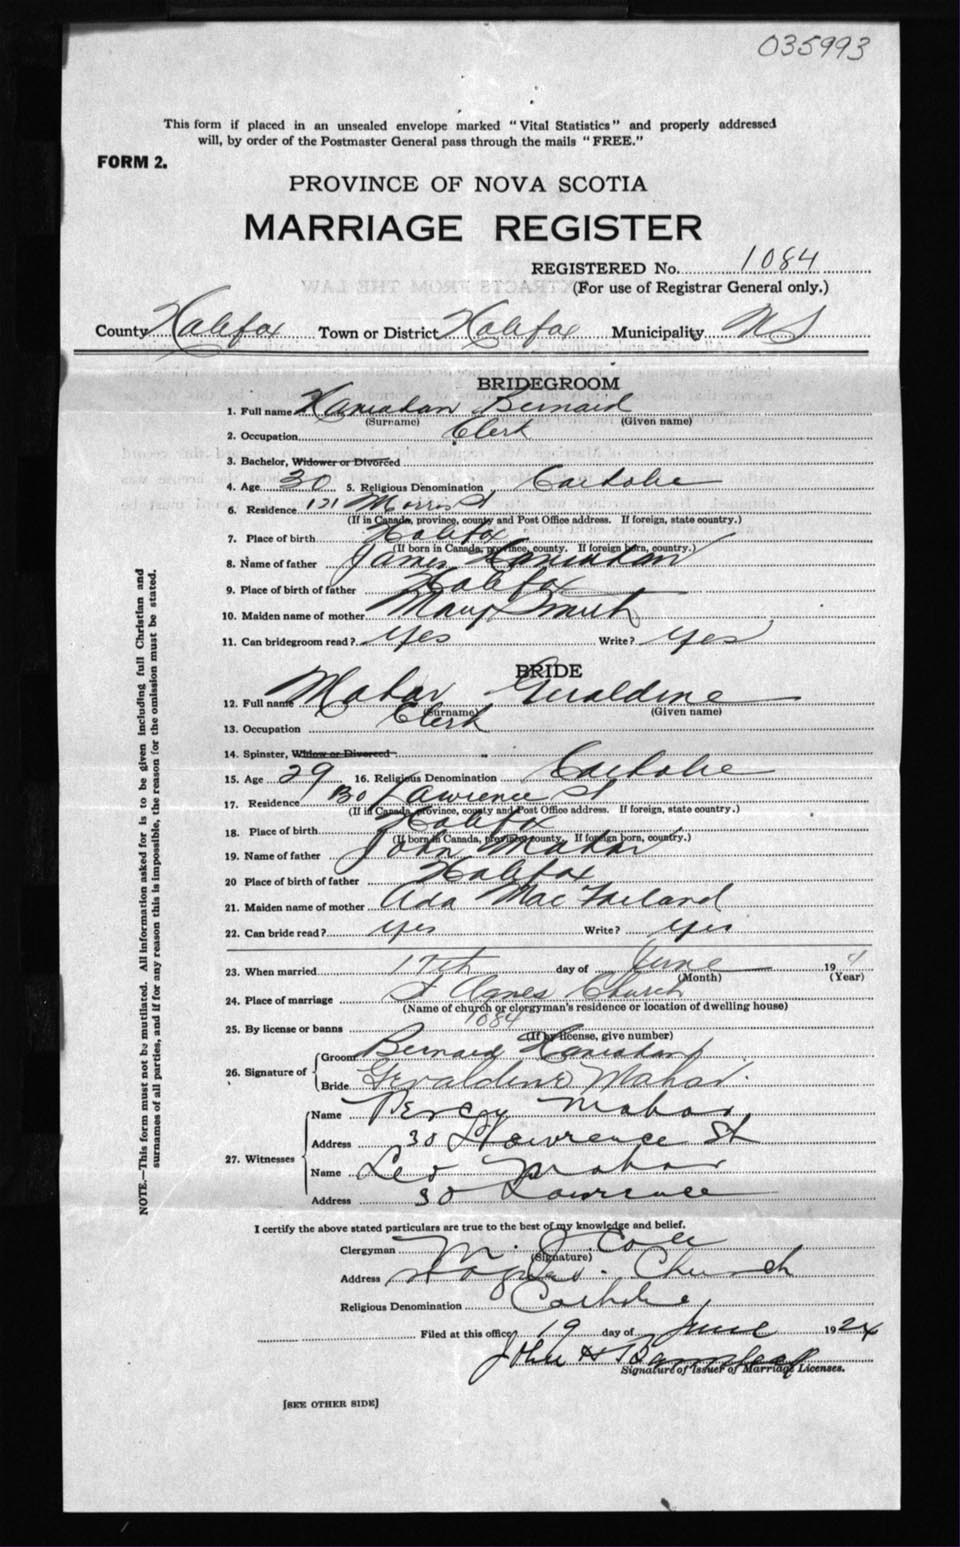 035993
This form if placed in an unsealed envelope marked "Vital Statistics" and properly addressed
will, by order of the Postmaster General pass through the mails "FREE."
FORM 2.
PROVINCE OF NOVA SCOTIA
MARRIAGE REGISTER
REGISTERED No. 1084
(For use of Registrar General only.)
County Halifax Town or District Halifax Municipality NS
BRIDEGROOM
1. Full name Hanrahan Bernard
(Surname) (Given name)
2. Occupation Clerk
3. Bachelor, Widower or Divorced
4. Age 30 5. Religious Denomination Catholic
6. Residence 121 Morris St
(If in Canada, province, county and Post Office address. If foreign, state country.)
7. Place of birth Halifax
(If born in Canada, province, county. If foreign born, country.)
8. Name of father James Hanrahan
9. Place of birth of father Halifax
10. Maiden name of mother Mary Smith
11. Can bridegroom read? yes Write? yes
BRIDE
12. Full name Mahar Geraldine
(Surname) (Given name)
13. Occupation Clerk
14. Spinster, Widow or Divorced
15. Age 29 16. Religious Denomination Catholic
17. Residence 30 Lawrence St
(If in Canada, province, county and Post Office address. If foreign, state country.)
18. Place of birth Halifax
(If born in Canada, province, county. If foreign born, country.)
19. Name of father John Mahar
20 Place of birth of father Halifax
21. Maiden name of mother Ada Mac Farland
22. Can bride read? yes Write? yes
23. When married 17th day of June 19 4
(Month) (Year)
24. Place of marriage St Agnes Church
(Name of church or clergyman's residence or location of dwelling house)
25. By license or banns 1084
(If by license, give number)
26. Signature of
Groom Bernard Hanrahan
Bride Geraldine Mahar.
27. Witnesses
Name Percy Mahar,
Address 30 Lawrence St
Name Leo Mahar
Address 30 Lawrence
I certify the above stated particulars are true to the best of my knowledge and belief.
Clergyman M. J. Cole
(Signature)
Address St Agnes. Church
Religious Denomination Catholic
Filed at this office 19 day of June 1924
John H
Signature of Issuer of Marriage Licenses.
[SEE OTHER SIDE]
NOTE.—This form must not be mutilated. All information asked for is to be given including full Christian and
surnames of all parties, and if for any reason this is impossible, the reason for the omission must be stated.